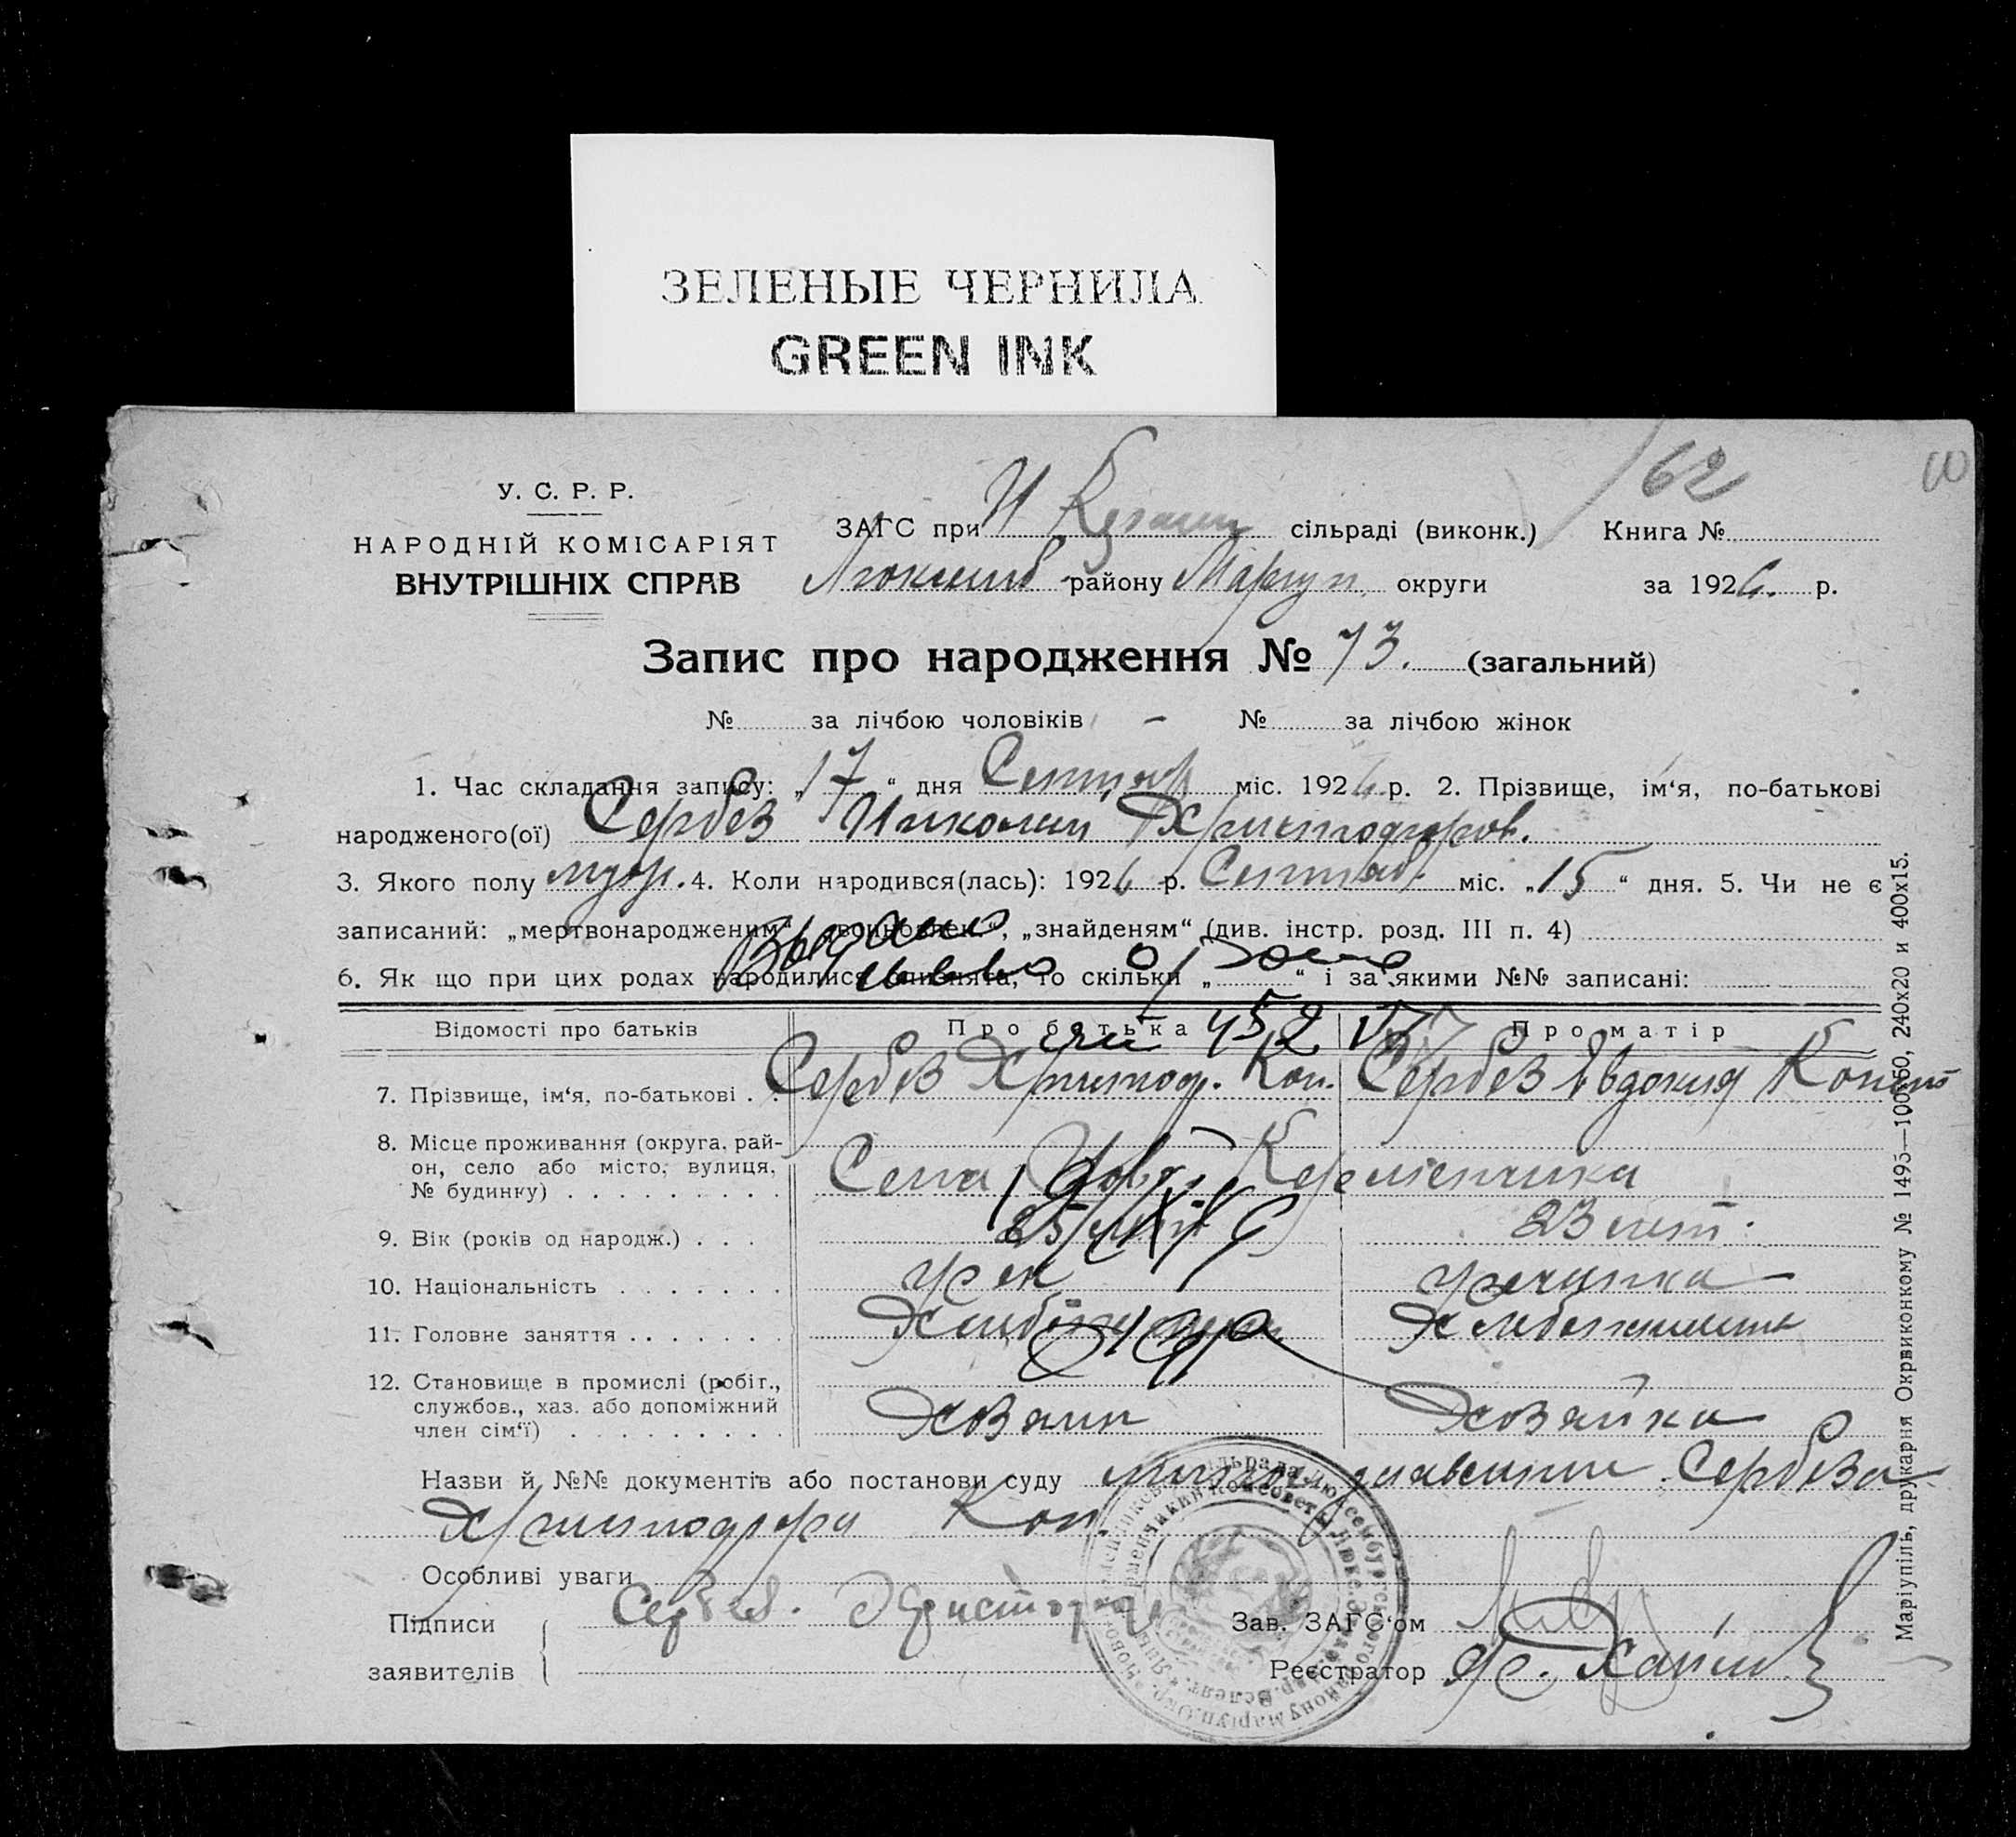 ЗЕЛЕНЫЕ ЧЕРНИЛА
GREEN INK
162
У. С. Р. Р.
НАРОДНІЙ КОМІСАРІЯТ
ВНУТРІШНІХ СПРАВ
ЗАГС при сільраді (виконк.) Книга №
району Мариуп. округи за 1926. р.
Запис про народження № 73. (загальний)
№ за лічбою чоловіків — № за лічбою жінок
1. Час складання запису: „17“ дня Сентяб міс. 1926 р. 2. Прізвище, ім‘я, по-батькові
народженого(ої) Сербез Николай Христофоров.
3. Якого полу муж. 4. Коли народився(лась): 1926 р. Сентяб. міс. „15“ дня. 5. Чи не є
записаний: „мертвонародженим“, , „знайденям“ (див. інстр. розд. III п. 4)
6. Як що при цих родах народилися близнята, то скільки „ “ і за якими №№ записані:
Выдано
Відомості про батьків Про батька Про матір
452
7. Прізвище, ім‘я, по-батькові . . Сербез Христоф. Кон. Сербез Евдокия Конст
8. Місце проживання (округа, рай-
он, село або місто, вулиця,
№ будинку) Села Нов. Керменчика
9. Вік (років од народж.) 25 лет 23 лет.
10. Національність грек гречанка
11. Головне заняття Хлебопашец Хлебопашец
12. Становище в промислі (робіт.,
службов., хаз. або допоміжний
член сім‘ї) Хозяин Хозяйка
Назви й №№ документів або постанови суду заявлении Сербеза
Христофора Кон.
Особливі уваги
Підписи
заявителів
Сербез. Христофор
Зав. ЗАГС‘ом
Реєстратор
Маріупіль, друкарня Окрвиконкому № 1495—100х60, 240х20 и 400х15.